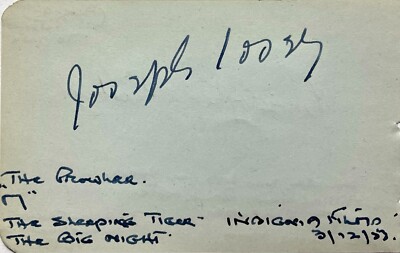 Joseph Losey
"THE PROWLER.
M"
THE SLEEPING TIGER - INSIGNIA FILMS
THE BIG NIGHT. 3/12/53.